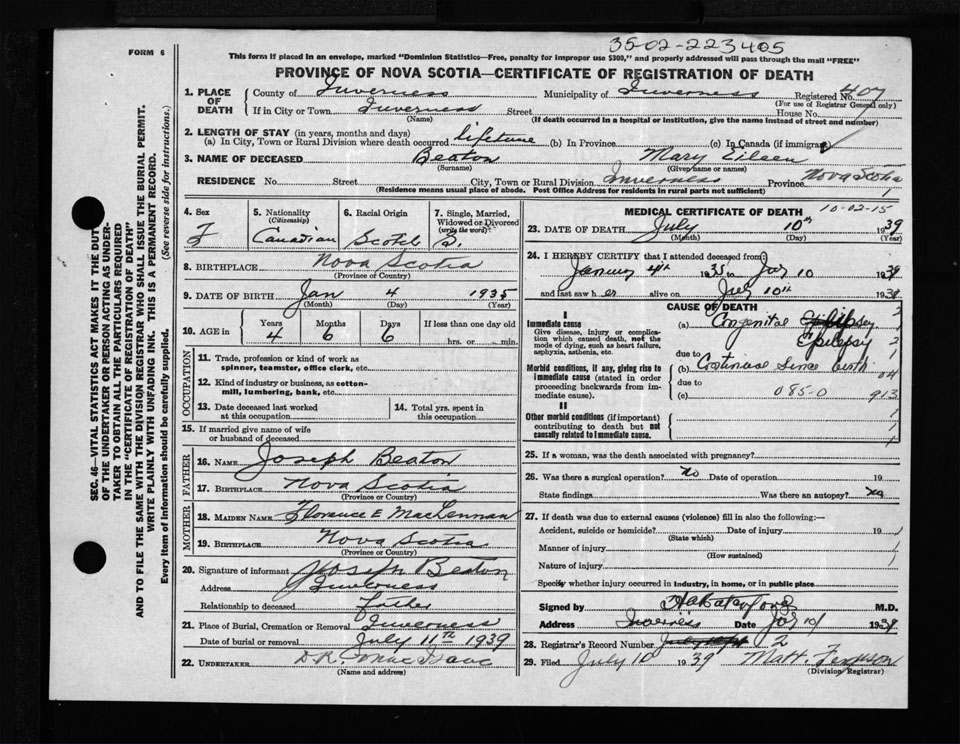 35-02-223405
FORM 6
This form if placed in an envelope, marked "Dominion Statistics—Free, penalty for improper use $300," and properly addressed will pass through the mail "FREE"
PROVINCE OF NOVA SCOTIA—CERTIFICATE OF REGISTRATION OF DEATH
1. PLACE OF DEATH
County of Inverness Municipality of Inverness Registered No. 407
(For use of Registrar General only)
If in City or Town Inverness Street House No.
(Name) (If death occurred in a hospital or institution, give the name instead of street and number)
2. LENGTH OF STAY (in years, months and days)
(a) In City, Town or Rural Division where death occurred lifetime (b) In Province (c) In Canada (if immigrant)
3. NAME OF DECEASED Beaton Mary Eileen
(Surname) (Given name or names)
RESIDENCE No. Street City, Town or Rural Division Inverness Province Nova Scotia
(Residence means usual place of abode. Post Office Address for residents in rural parts not sufficient) 1
4. Sex F
5. Nationality (Citizenship) Canadian
6. Racial Origin Scotch
7. Single, Married, Widowed or Divorced (write the word) S.
8. BIRTHPLACE Nova Scotia
(Province or Country)
9. DATE OF BIRTH Jan 4 1935
(Month) (Day) (Year)
10. AGE in Years Months Days If less than one day old
4 6 6 hrs. or min.
OCCUPATION
11. Trade, profession or kind of work as spinner, teamster, office clerk, etc.
12. Kind of industry or business, as cotton-mill, lumbering, bank, etc.
13. Date deceased last worked at this occupation
14. Total yrs. spent in this occupation
15. If married give name of wife or husband of deceased
FATHER
16. NAME Joseph Beaton
17. BIRTHPLACE Nova Scotia
(Province or Country)
MOTHER
18. MAIDEN NAME Florence E MacLennan
19. BIRTHPLACE Nova Scotia
(Province or Country)
20. Signature of informant Joseph Beaton
Address Inverness
Relationship to deceased Father
21. Place of Burial, Cremation or Removal Inverness
Date of burial or removal July 11th 1939
22. UNDERTAKER D.R. MacIsaac
(Name and address)
MEDICAL CERTIFICATE OF DEATH 10-02-15
23. DATE OF DEATH July 10th 1939
(Month) (Day) (Year)
24. I HEREBY CERTIFY that I attended deceased from:
January 4th 1935 10 1939
and last saw her alive on July 10th 1939
CAUSE OF DEATH
I
Immediate cause
Give disease, injury or complication which caused death, not the mode of dying, such as heart failure, asphyxia, asthenia, etc.
(a) Congenital
Epilepsy
due to
Morbid conditions, if any, giving rise to immediate cause (stated in order proceeding backwards from immediate cause).
(b) Continual since birth
due to
(c) 085-0 913
II
Other morbid conditions (if important) contributing to death but not causally related to immediate cause.
25. If a woman, was the death associated with pregnancy?
26. Was there a surgical operation? No Date of operation 19
State findings Was there an autopsy? No
27. If death was due to external causes (violence) fill in also the following:—
Accident, suicide or homicide? Date of injury 19
(State which)
Manner of injury
(How sustained)
Nature of injury
Specify whether injury occurred in industry, in home, or in public place
Signed by M.D.
Address Inverness Date 10 1939
28. Registrar's Record Number 2
29. Filed July 10 1939 Matt. Ferguson
(Division Registrar)
SEC. 46—VITAL STATISTICS ACT MAKES IT THE DUTY
OF THE UNDERTAKER OR PERSON ACTING AS UNDER-
TAKER TO OBTAIN ALL THE PARTICULARS REQUIRED
IN THE "CERTIFICATE OF REGISTRATION OF DEATH"
AND TO FILE THE SAME WITH THE DIVISION REGISTRAR WHO SHALL ISSUE THE BURIAL PERMIT.
WRITE PLAINLY WITH UNFADING INK. THIS IS A PERMANENT RECORD.
Every item of information should be carefully supplied. (See reverse side for instructions.)